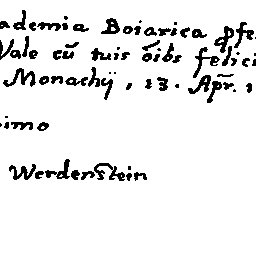 ademia Boiarica ꝓfe
Vale cū tuis oībs felici
Monachij, 13. Apr̄. 1
imo
Werdenstein